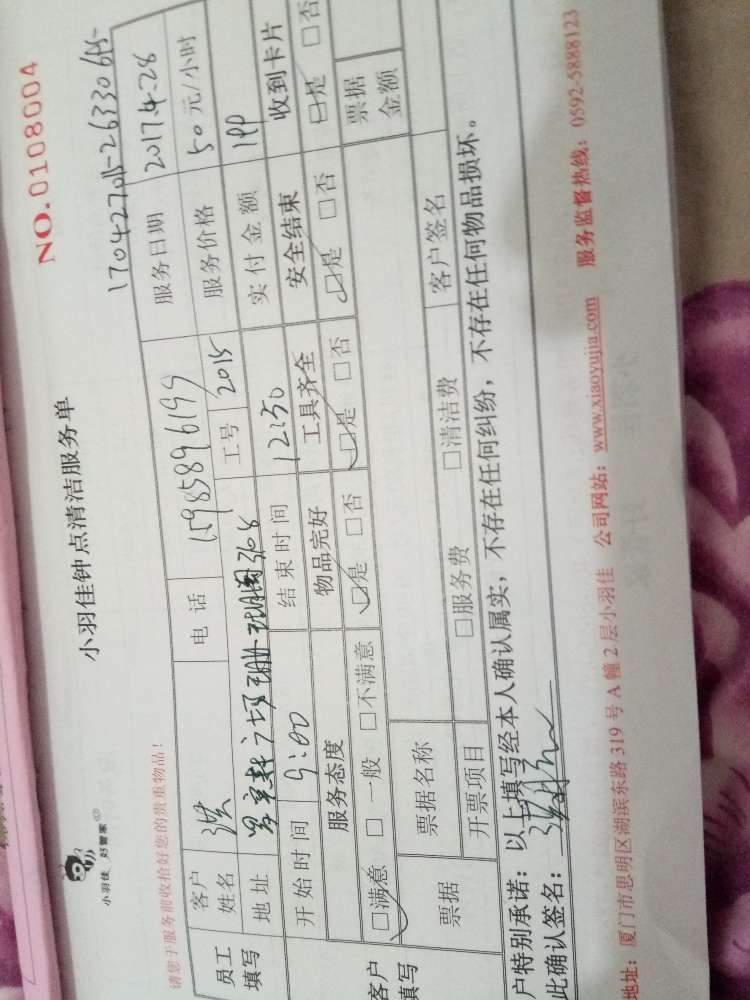 NO.0108004
小羽佳 好管家
小羽佳钟点清洁服务单
请您于服务前收拾好您的贵重物品！
170427015-26330615-
员工填写
客户姓名 洪 电话 15985896199 服务日期 2017.4.28
地址 3208 工号 2015 服务价格 50元/小时
开始时间 9:00 结束时间 12:50 实付金额 190
服务态度 物品完好 工具齐全 安全结束 收到卡片
客户填写
□满意 □一般 □不满意 □是 □否 □是 □否 □是 □否 □是 □否
票据 票据名称 客户签名 票据金额
开票项目 □服务费 □清洁费
户特别承诺：以上填写经本人确认属实，不存在任何纠纷，不存在任何物品损坏。
此确认签名：
地址：厦门市思明区湖滨东路319号A幢2层小羽佳 公司网站：www.xiaoyujia.com 服务监督热线：0592-5888123